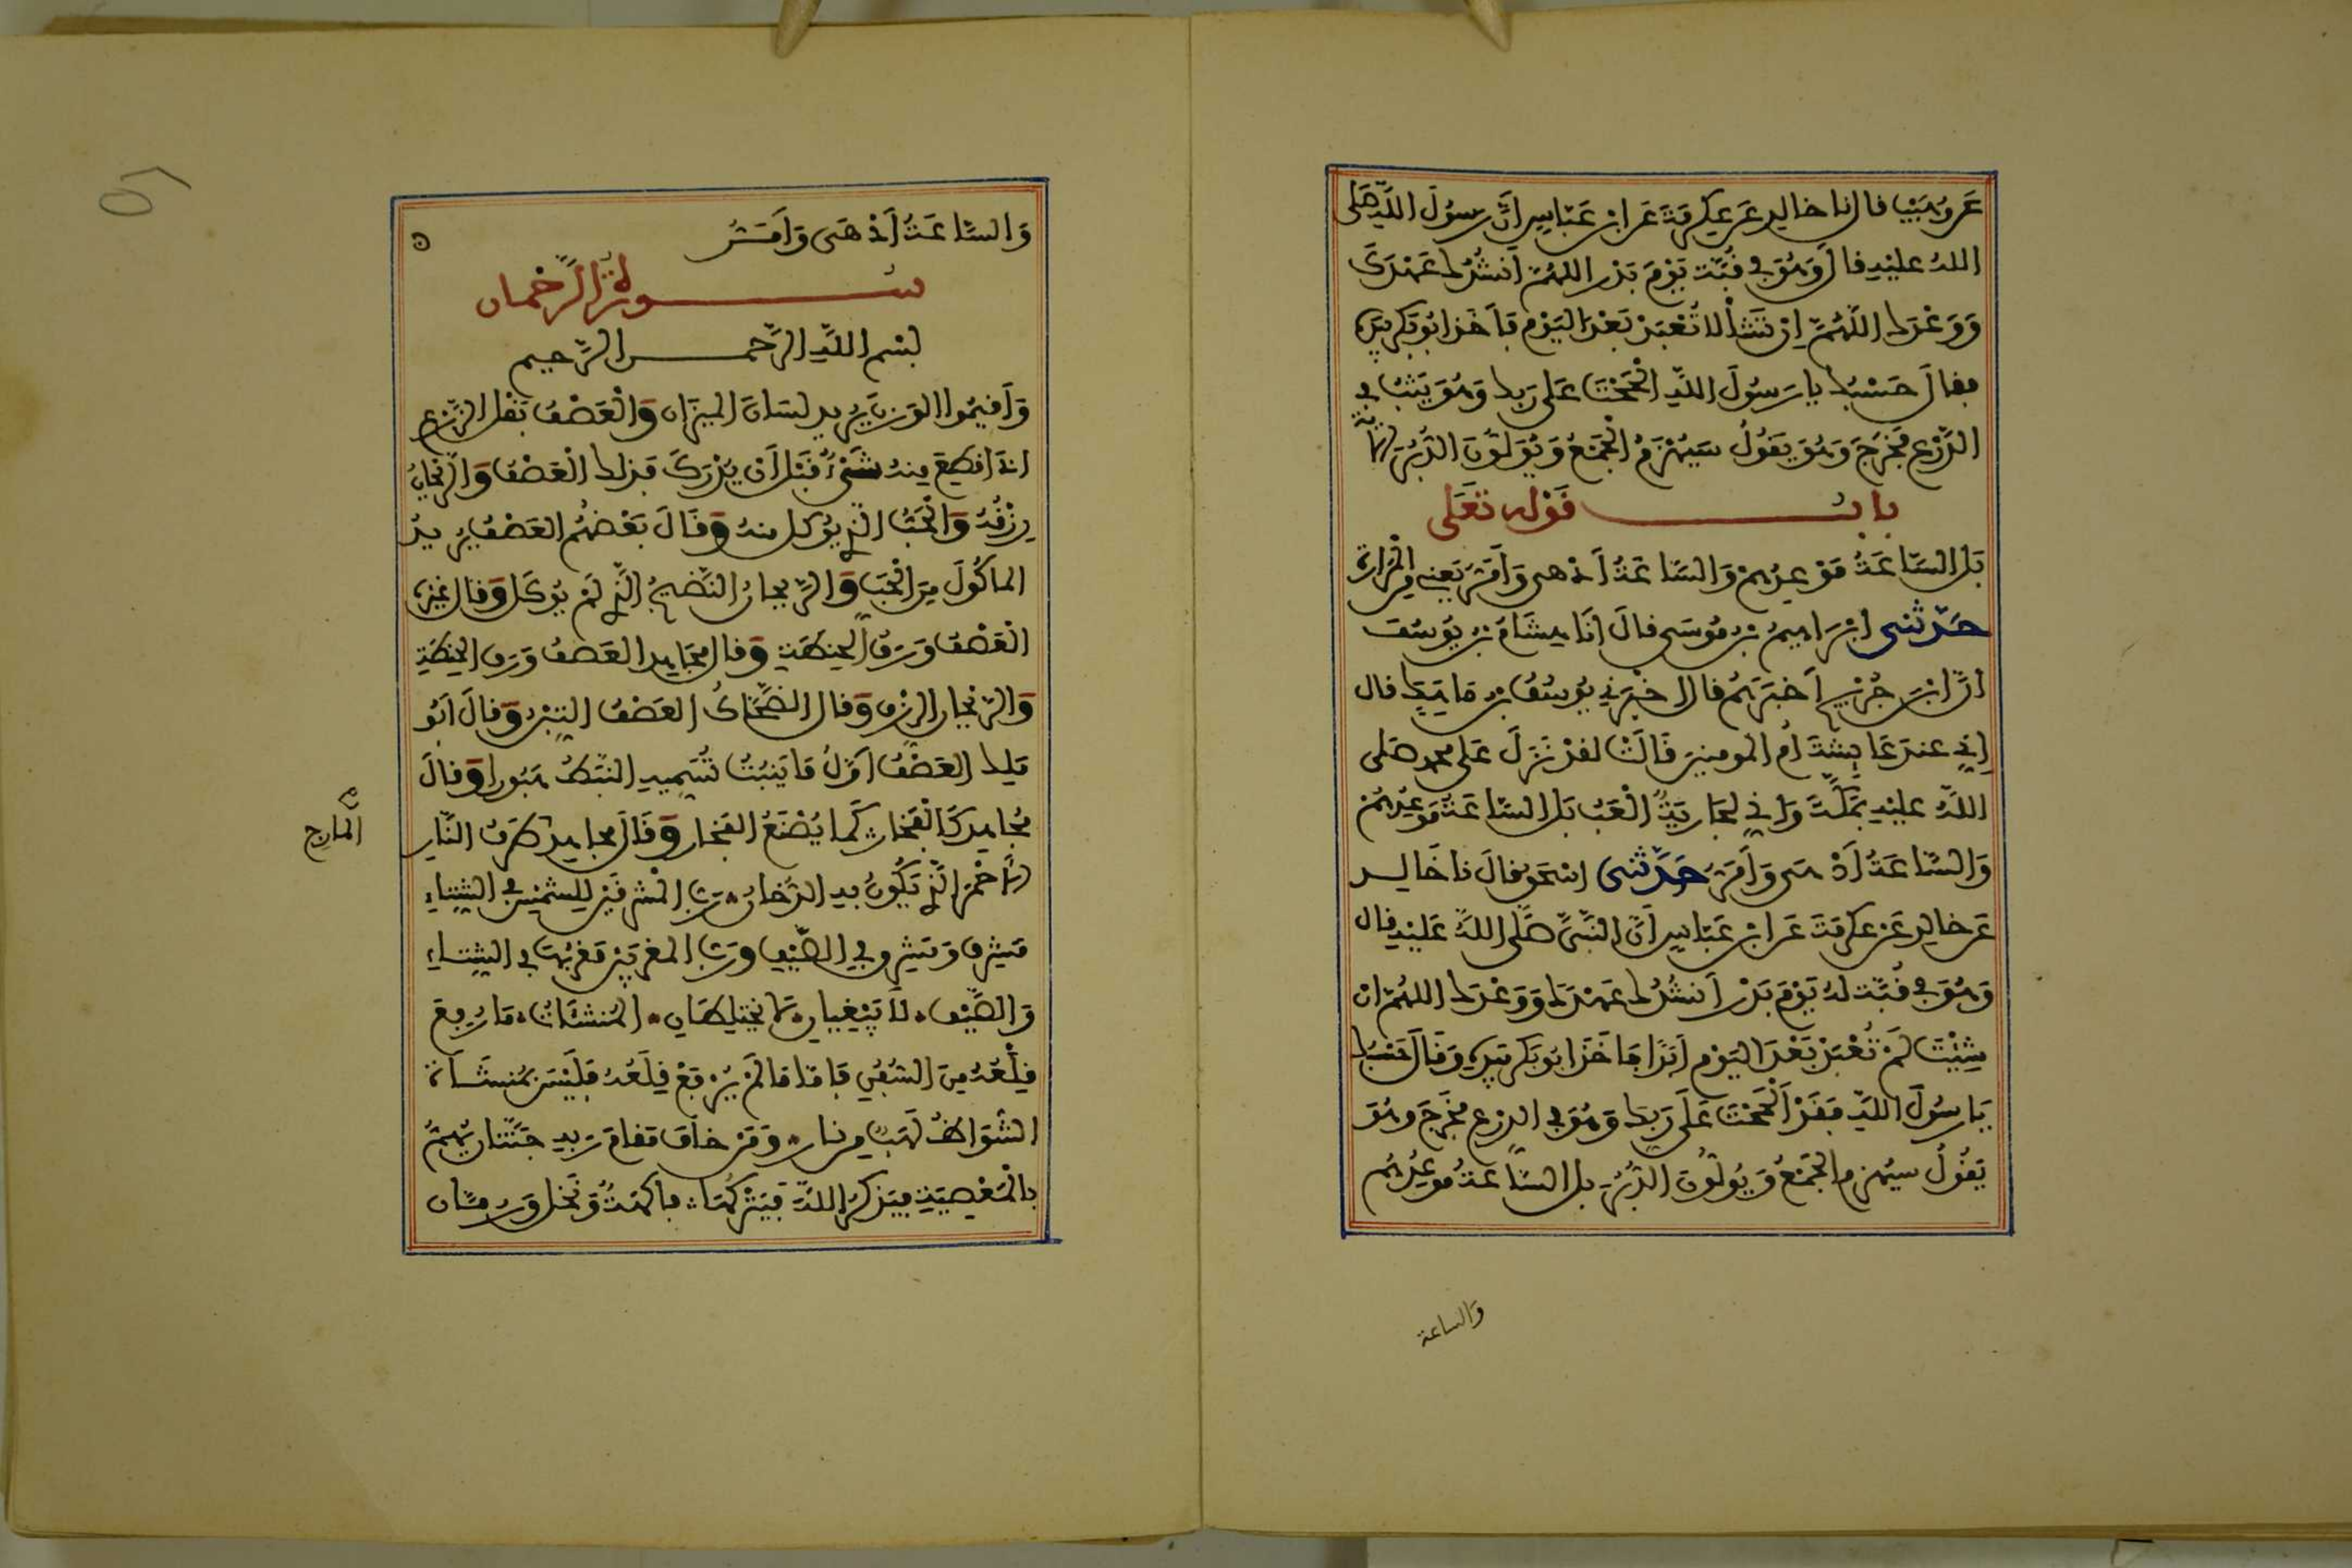 عَن وُهَيْب قال نا خالد عَن عِكرِمَةَ عَن ابن عَبّاسٍ انَّ رسُولَ اللَّهِ صَلى
اللهُ عليْهِ قال وَهُوَ في قُبَّةٍ يَوْمَ بَدْرٍ اللهُمَّ اَنْشُدُكَ عَهْدَكَ
وَوَعْدَكَ اللَّهُمَّ اِنْ تَشَأْ لا تُعْبَدْ بَعْدَ اليَوْمِ فَأَخَذَ ابُو بَكرٍ بِيَدِهِ
فقالَ حَسْبُكَ يا رَسُولَ اللَّهِ اَلْحَحْتَ عَلى رَبِكَ وَهُوَ يَثِبُ في
الدِّرْعِ فَخَرَجَ وَهُوَ يَقُولُ سَيُهْزَمُ الْجَمْعُ وَيُوَلُّونَ الدُّبُرَ الآيَةَ
بابُ قَوْلِهِ تَعَلى
بَلِ السَّاعَةُ مَوْعِدُهُمْ وَالسَّاعَةُ أَدْهى وَأَمَرُّ يَعْنِي مِنَ الْمَرارَةِ
حَدّثني ابْرَاهِيمُ بْنُ مُوسَى قالَ انَا هِشَامُ بْنُ يُوسُفَ
أنَّ ابْنَ جُرَيْجٍ أَخْبَرَهُمْ قال اخْبَرَنِي يُوسُفُ بْنُ مَاهَكَ قال
إِنِي عندَ عَائِشَةَ أُمِ المومنِينَ قَالَتْ لقدْ نَزَلَ عَلى محمدٍ صَلى
اللَّهُ عليْهِ بِمَكَّةَ وَإِنِي لجَارِيَةٌ أَلْعَبُ بَلِ السَّاعَةُ مَوْعِدُهُمْ
وَالسَّاعَةُ أَدْهَى وَأَمَرُّ حَدَّثني اسْحَقُ قالَ نا خَالِد
عَن خالِدٍ عَنْ عِكرِمَةَ عَنِ ابْنِ عَبّاسٍ أَنَّ النَّبِيَّ صَلَّى اللَّهُ عَلَيْهِ قال
وَهُوَ في قُبَّةٍ لهُ يَوْمَ بَدْرٍ أَنشُدُكَ عَهْدَكَ وَوَعْدَكَ اللهُمَّ انْ
شِئْتَ لَمْ تُعْبَدْ بَعْدَ اليَوْمِ أَبَدًا فَأَخَذَ ابُو بَكرٍ بِيَدِهِ وَقَالَ حَسْبُكَ
يَا رسُولَ اللَّهِ فَقَدْ أَلْحَحْتَ عَلَى رَبِكَ وَهُوَ في الدِرْعِ فَخَرَجَ وَهُوَ
يَقُولُ سَيُهزَمُ الْجَمْعُ وَيُوَلُّونَ الدُّبُرَ بل السَّاعَةُ مَوْعِدُهُم
والساعة
وَالسَّاعَةُ أَدْهَى وَأَمَرُّ
سُورَةُ الرَّحْمان
بسْمِ اللَّهِ الرَّحْمنِ الرَّحِيمِ
وَأَقِيمُوا الوَزْنَ يُرِيدُ لسَانَ المِيزَانِ وَالْعَصْفُ بَقْلُ الزَّرْعِ
اذَا قُطِعَ مِنْهُ شَيْءٌ قَبْلَ أَنْ يُدْرِكَ فَذلِكَ الْعَصْفُ وَالرَّيْحَانُ
رِزْقُهُ وَالْحَبُّ الَّذِي يُوكَلُ مِنهُ وَقَالَ بَعْضُهُمُ العَصْفُ يُرِيدُ
المأكُولَ مِنَ الْحَبِّ وَالرَّيحانُ النَّضِيجُ الَّذِي لَمْ يُوكَلْ وَقال غَيْرُهُ
الْعَصْفُ وَرَقُ الْحِنْطَةِ وَقال مُجَاهِدٌ العَصْفُ وَرَقُ الحِنْطَةِ
وَالرَّيْحانُ الرِّزْقُ وَقال الضَّحَّاكُ العَصْفُ التِبْنُ وَقالَ اَبُو
مَلِكٍ العَصْفُ اَوَّلُ مَا يَنبُتُ تُسَمِيهِ النَّبَطُ هَبُورًا وَقالَ
مُجاهِدٌ كَالْفَخَّارِ كَمَا يُصْنَعُ الفَخَّارُ وَقَالَ مجاهِدٌ طَرَفُ النَّارِ
المارج
الأَحْمَرُ الَّذِي تَكُونُ بِهِ الدُّخانُ رَبُّ الْمَشْرِقَيْنِ لِلشَّمْسِ في الشِّتاءِ
مَشْرِقٌ وَمَشْرِقٌ في الصَّيْفِ وَرَبُّ المَغْرِبَيْنِ مَغْرِبُهَا في الشِتاءِ
وَالصَّيْفِ لاَ يَبْغِيانِ لا يَخْتَلِطَانِ المُنشَآتُ مَا رُفِعَ
قِلْعُهُ مِنَ السُّفُنِ فَأَمَّا مَا لَمْ يُرْفَعْ قِلْعُهُ فَلَيْسَ بمُنشَأَةٍ
الشُّوَاظُ لَهَبٌ مِن نارٍ وَمَنْ خافَ مَقامَ رَبِهِ جَنَّتَانِ يَهُمُّ
بِالْمَعْصِيَةِ فيَذْكُرُ اللَّهَ فَيَتْرُكُهَا فاكهَةٌ وَنَخْلٌ وَرُمَّانٌ